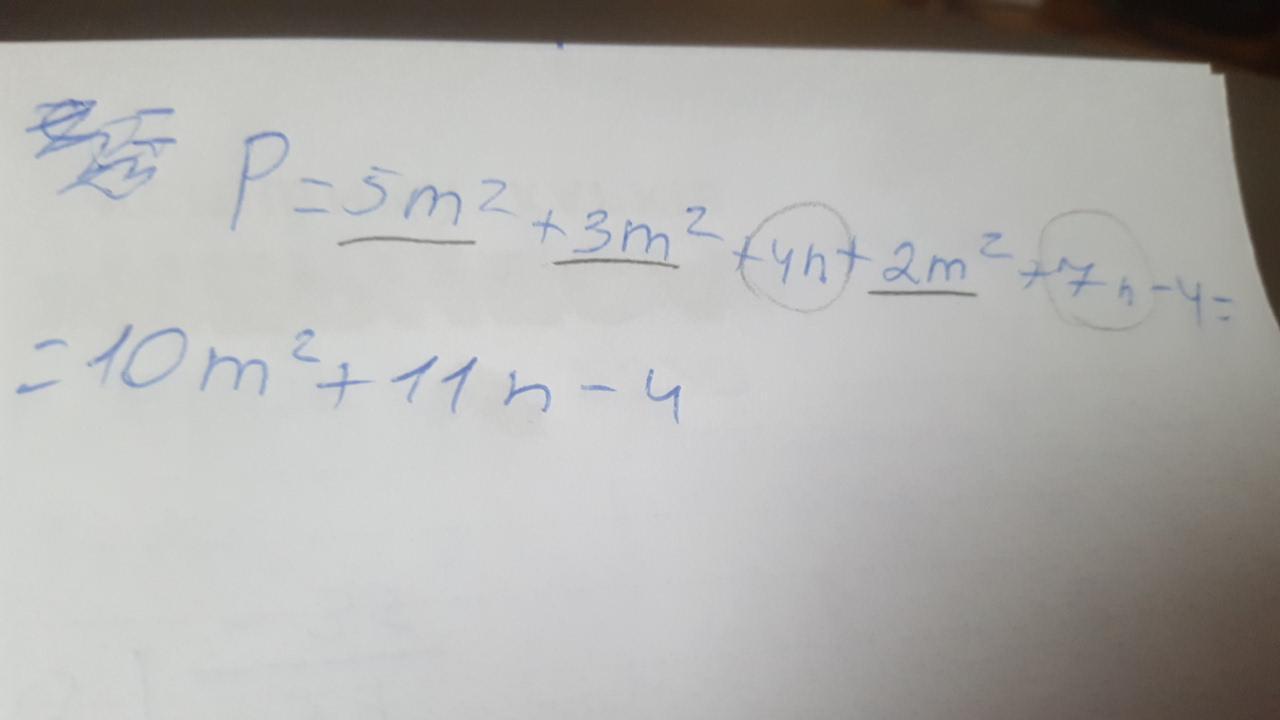 P = 5m² + 3m² + 4n + 2m² + 7n - 4 =
= 10m² + 11n - 4